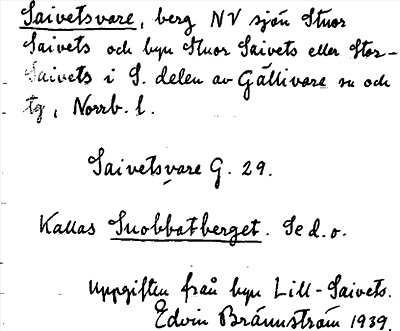 Saivetsvare, berg NV sjön Stuor
Saivets och byn Stuor Saivets eller Stor-
Saivets i S. delen av Gällivare sn och
tg, Norrb. l.
Saivetsvare G. 29.
Kallas Snobbatberget. Se d. o.
Uppgiften från byn Lill-Saivets.
Edvin Brännström 1939.